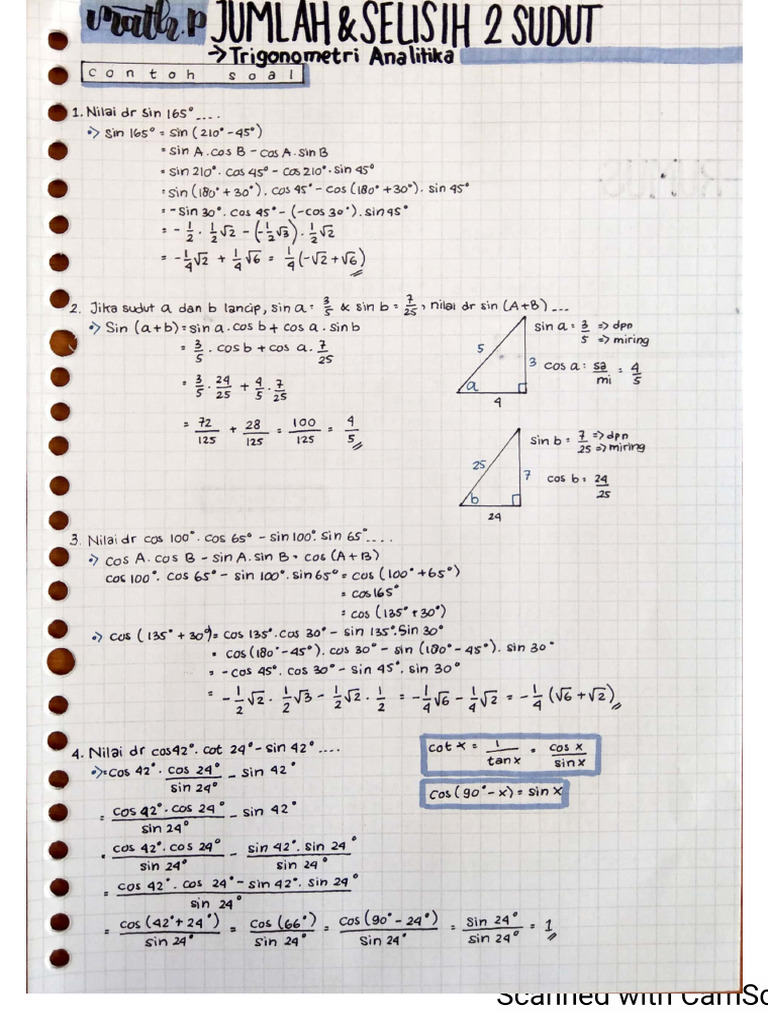 math.P JUMLAH & SELISIH 2 SUDUT
→ Trigonometri Analitika
contoh soal
1. Nilai dr sin 165° ....
•> Sin 165° = sin (210° - 45°)
= sin A . cos B - cos A . sin B
= sin 210° . cos 45° - cos 210° . sin 45°
= sin (180° + 30°) . cos 45° - cos (180° + 30°) . sin 45°
= - sin 30° . cos 45° - (-cos 30°) . sin 45°
= - 1/2 . 1/2 √2 - (-1/2 √3) . 1/2 √2
= - 1/4 √2 + 1/4 √6 = 1/4 (-√2 + √6)
2. Jika sudut a dan b lancip, sin a = 3/5 & sin b = 7/25, nilai dr sin (A+B) ...
•> Sin (a+b) = sin a . cos b + cos a . sin b
= 3/5 . cos b + cos a . 7/25
= 3/5 . 24/25 + 4/5 . 7/25
= 72/125 + 28/125 = 100/125 = 4/5
5
3
a
4
sin a = 3/5 => dpn => miring
cos a = sa/mi = 4/5
25
7
b
24
sin b = 7/25 => dpn => miring
cos b = 24/25
3. Nilai dr cos 100° . cos 65° - sin 100° . sin 65° ....
•> cos A . cos B - sin A . sin B = cos (A+B)
cos 100° . cos 65° - sin 100° . sin 65° = cos (100° + 65°)
= cos 165°
= cos (135° + 30°)
•> cos (135° + 30°) = cos 135° . cos 30° - sin 135° . Sin 30°
= cos (180° - 45°) . cos 30° - sin (180° - 45°) . sin 30°
= - cos 45° . cos 30° - sin 45° . sin 30°
= - 1/2 √2 . 1/2 √3 - 1/2 √2 . 1/2 = - 1/4 √6 - 1/4 √2 = - 1/4 (√6 + √2)
4. Nilai dr cos 42° . cot 24° - sin 42° ....
•> = cos 42° . cos 24°/sin 24° - sin 42°
= cos 42° . cos 24°/sin 24° - sin 42°
= cos 42° . cos 24°/sin 24° - sin 42° . sin 24°/sin 24°
= cos 42° . cos 24° - sin 42° . sin 24°/sin 24°
= cos (42° + 24°)/sin 24° = cos (66°)/sin 24° = cos (90° - 24°)/sin 24° = sin 24°/sin 24° = 1
cot x = 1/tan x = cos x/sin x
cos (90° - x) = sin x
Scanned with CamSc